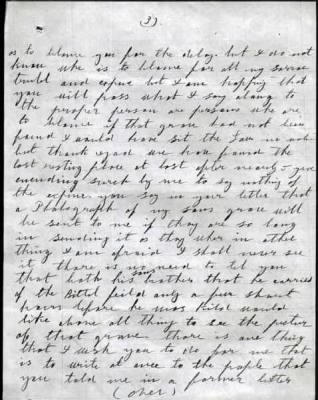 (3).
as to blame you for the delay. but I do not
know who is to blame for all my sorrow
trubl and expence but I am hopping that
you will pass what I say along to
the proper person are persons who are
to blame if that grave had not been
found I would have the Law
but thank god we have found the
last resting place at last after nearly
unending surch by me to say nothing of
the expence. you say in your letter that
a Photograph of my sons grave will
be sent to me if they are so long
in sending it as they wher in other
thing I am afraid I shall never see
it. there is no need to tell you
that both his sons brother that he carried
of the Battel feild only a few short
hours before he was Kild would
like above all thing to see the picture
of that grave. there is one thing
that I wish you to do for me that
is to write at once to the pople that
you told me in a former letter
(over)